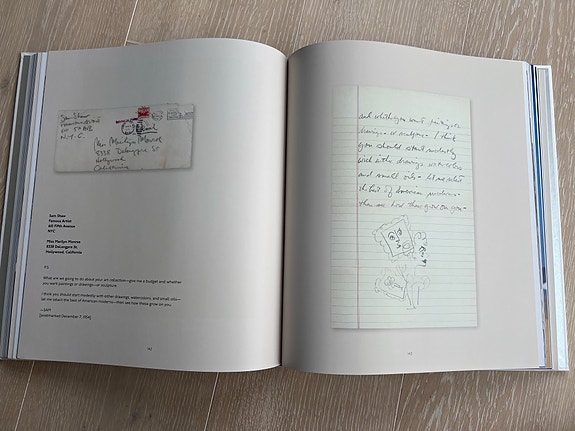 Sam Shaw
Famous Artist
6th Fifth Avenue
N.Y.C.
Miss Marilyn Monroe
8338 DeLongpre St
Hollywood
California
Sam Shaw
Famous Artist
645 Fifth Avenue
NYC
Miss Marilyn Monroe
8338 DeLongpre St.
Hollywood, California
P.S.
What are we going to do about your art collection—give me a budget and whether
you want paintings or drawings—or sculpture.
I think you should start modestly with either drawings, watercolors, and small oils—
let me select the best of American moderns—then see how those grow on you.
—SAM
[postmarked December 7, 1954]
142
and whether you want paintings or
drawings or sculpture— I think
you should start modestly
with either drawings watercolors
and small oils— let me select
the best of American moderns—
then see how those grow on you—
143